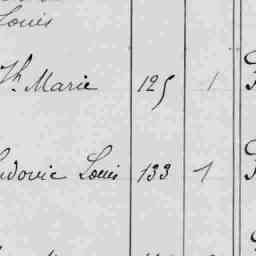 Louis
Th. Marie 125 1
Ludovic Louis 133 1